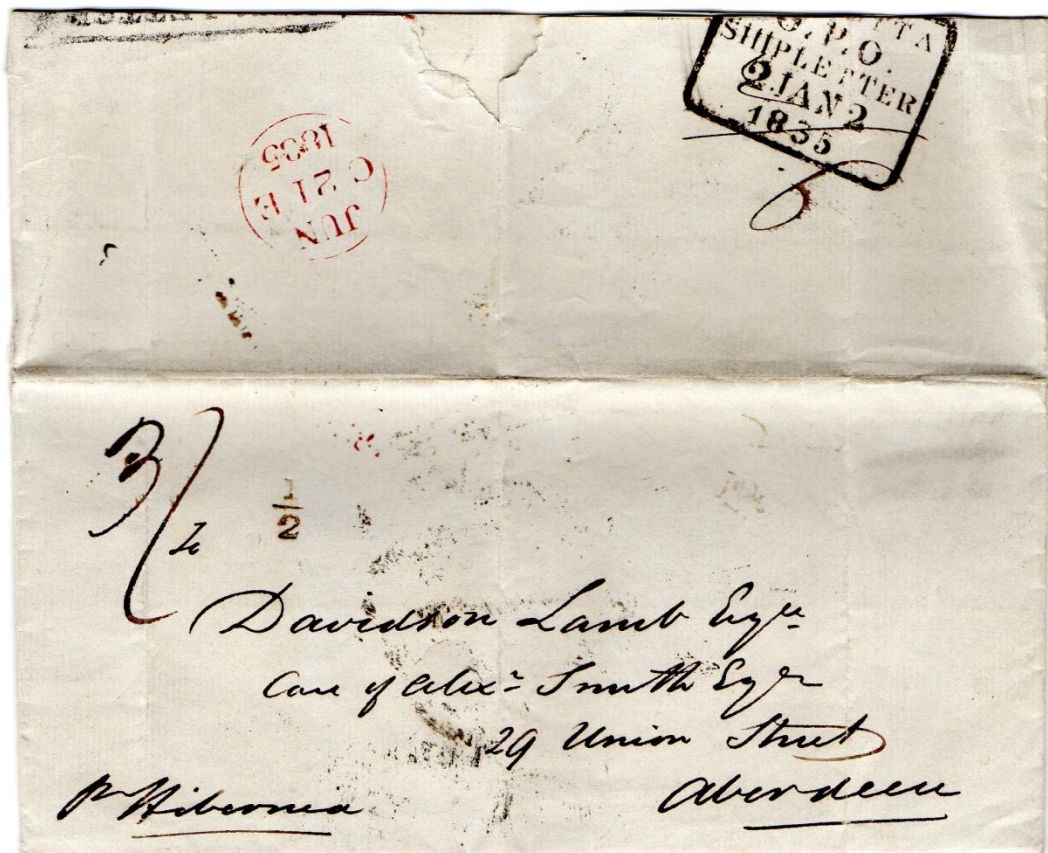 G.P.O.
SHIP LETTER
2 JAN 2
1835
JUN
C 21 E
1835
3/
To
1/2
Davidson Lamb Esqre
Care of Alexr Smith Esqr
29 Union Street
Aberdeen
pr Hibernia